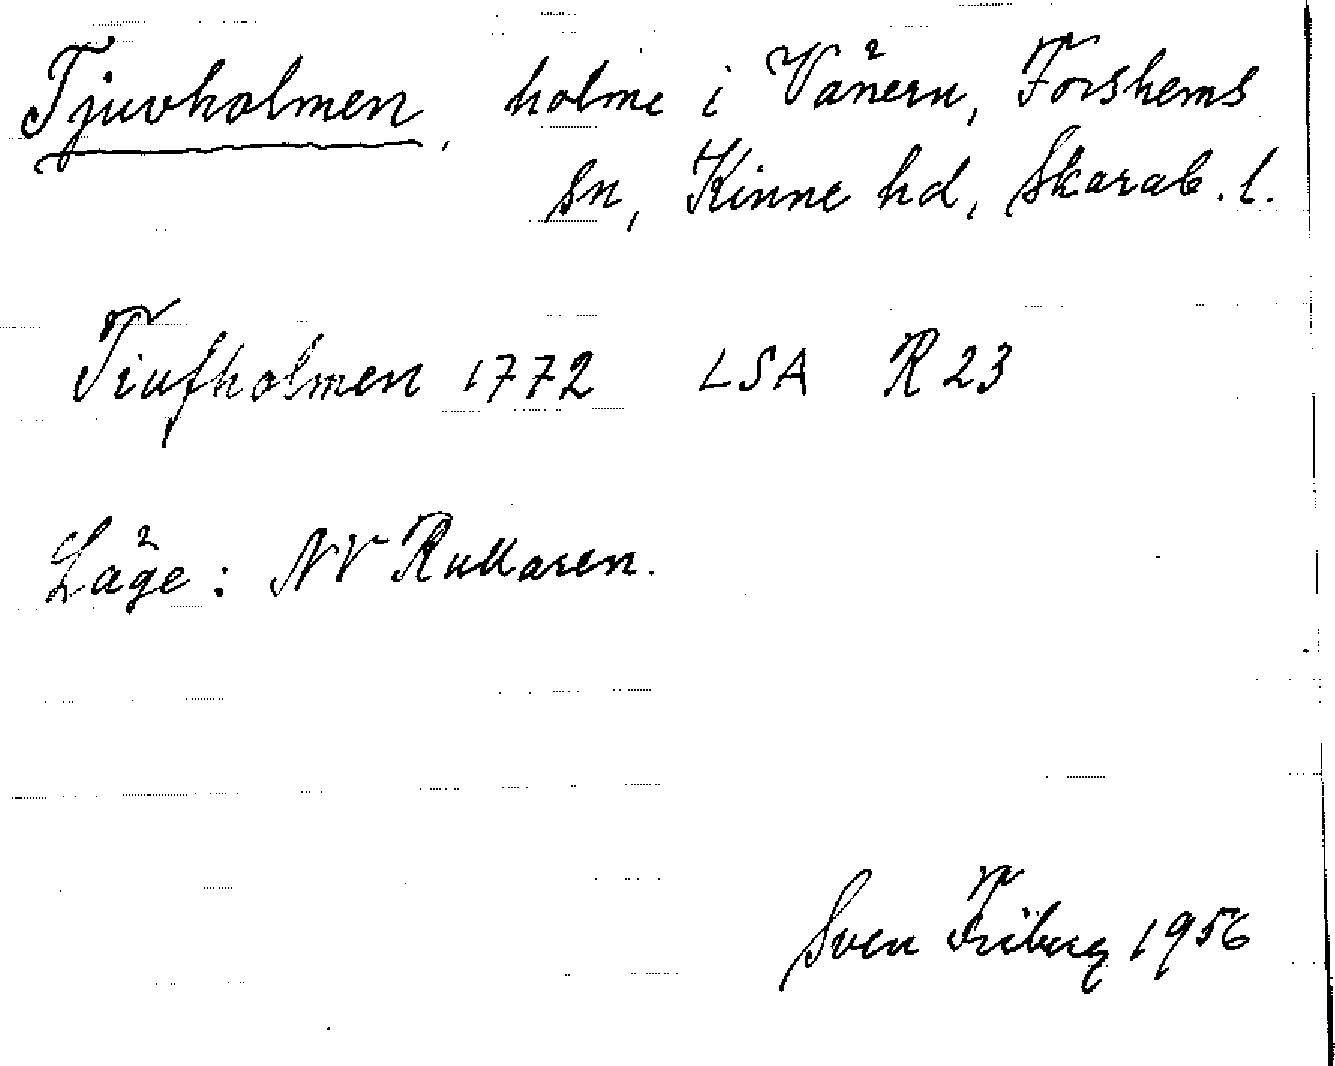 Tjuvholmen, holme i Vänern, Forshems
sn, Kinne hd, Skarab. l.
Tiufholmen 1772 LSA R 23
Läge: NV Rullaren.
Sven Friberg 1956